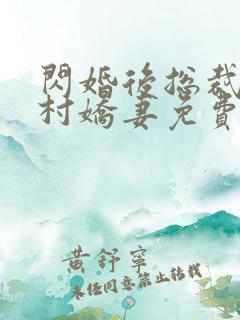 閃婚後總裁
村嬌妻免費
黃舒寧
未經同意禁止轉載